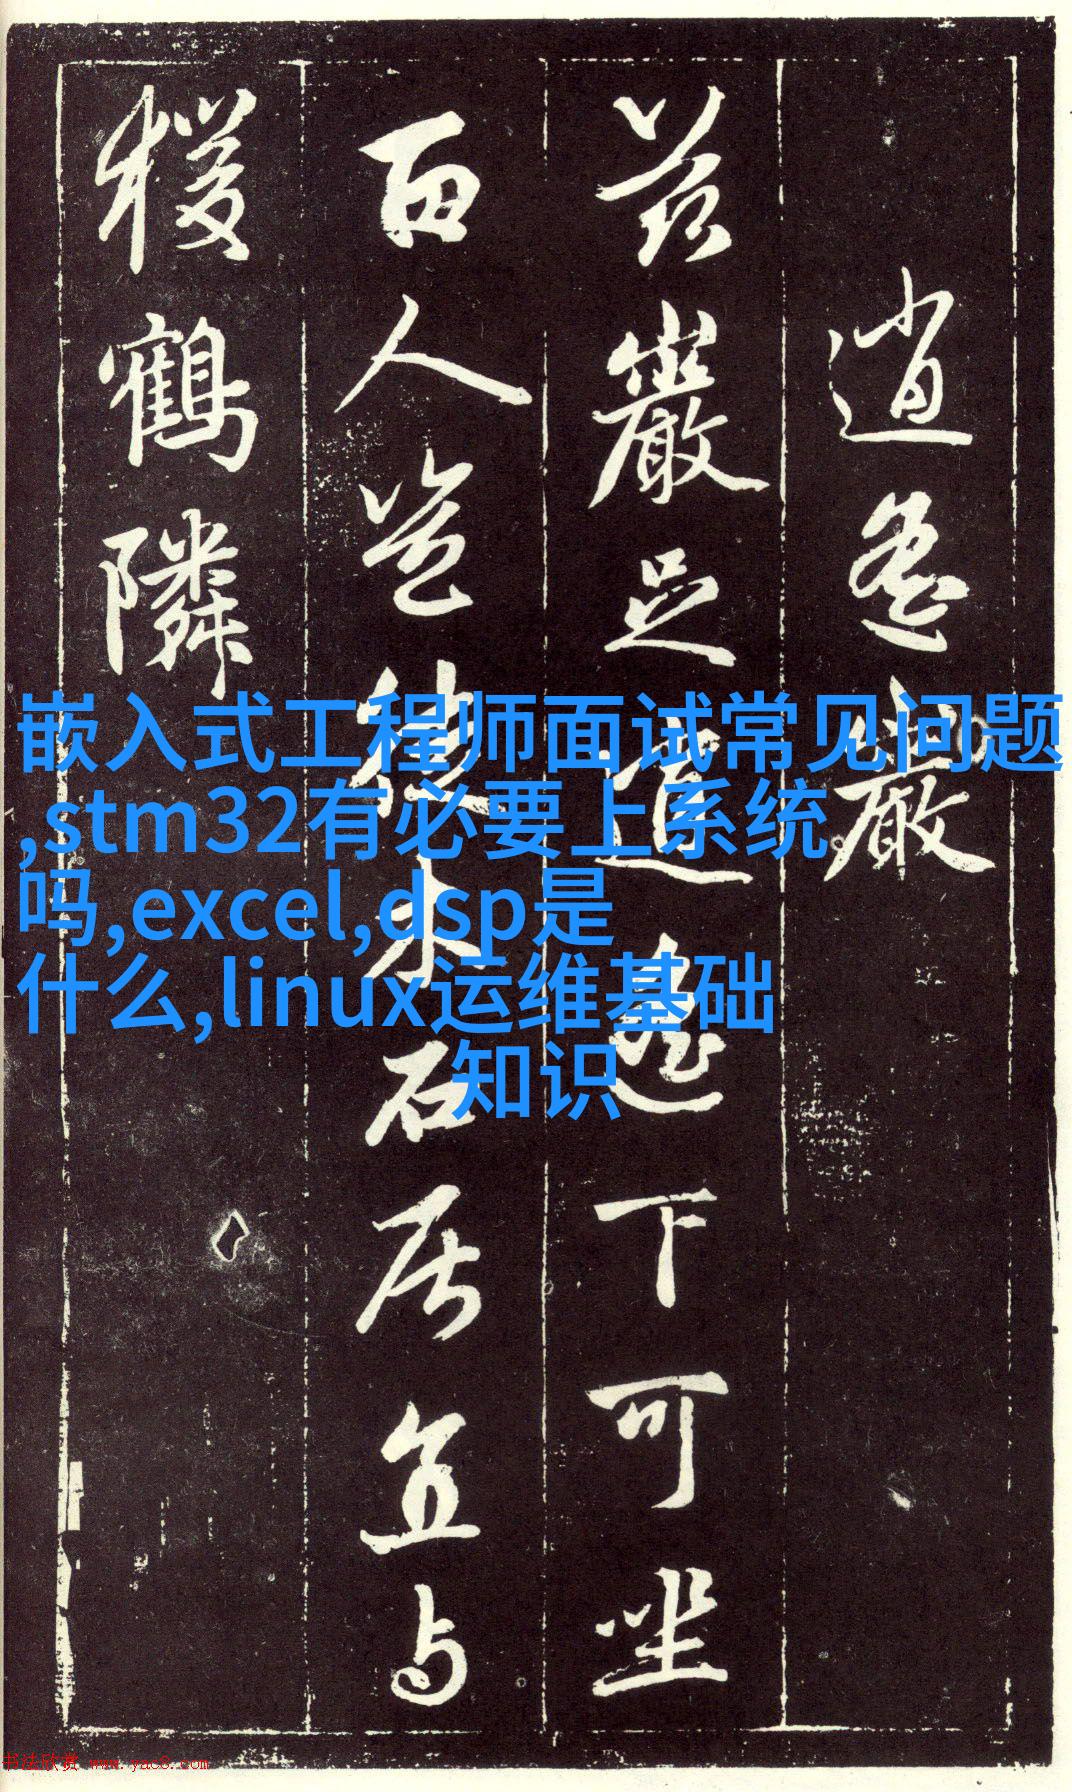 逍遙巖
茲巖足逍遙下可坐
百人豈徒木石居宜与
猨鶴隣
嵌入式工程师面试常见问题
,stm32有必要上系统
吗,excel,dsp是
什么,linux运维基础
知识
书法欣赏 www.yac8.com